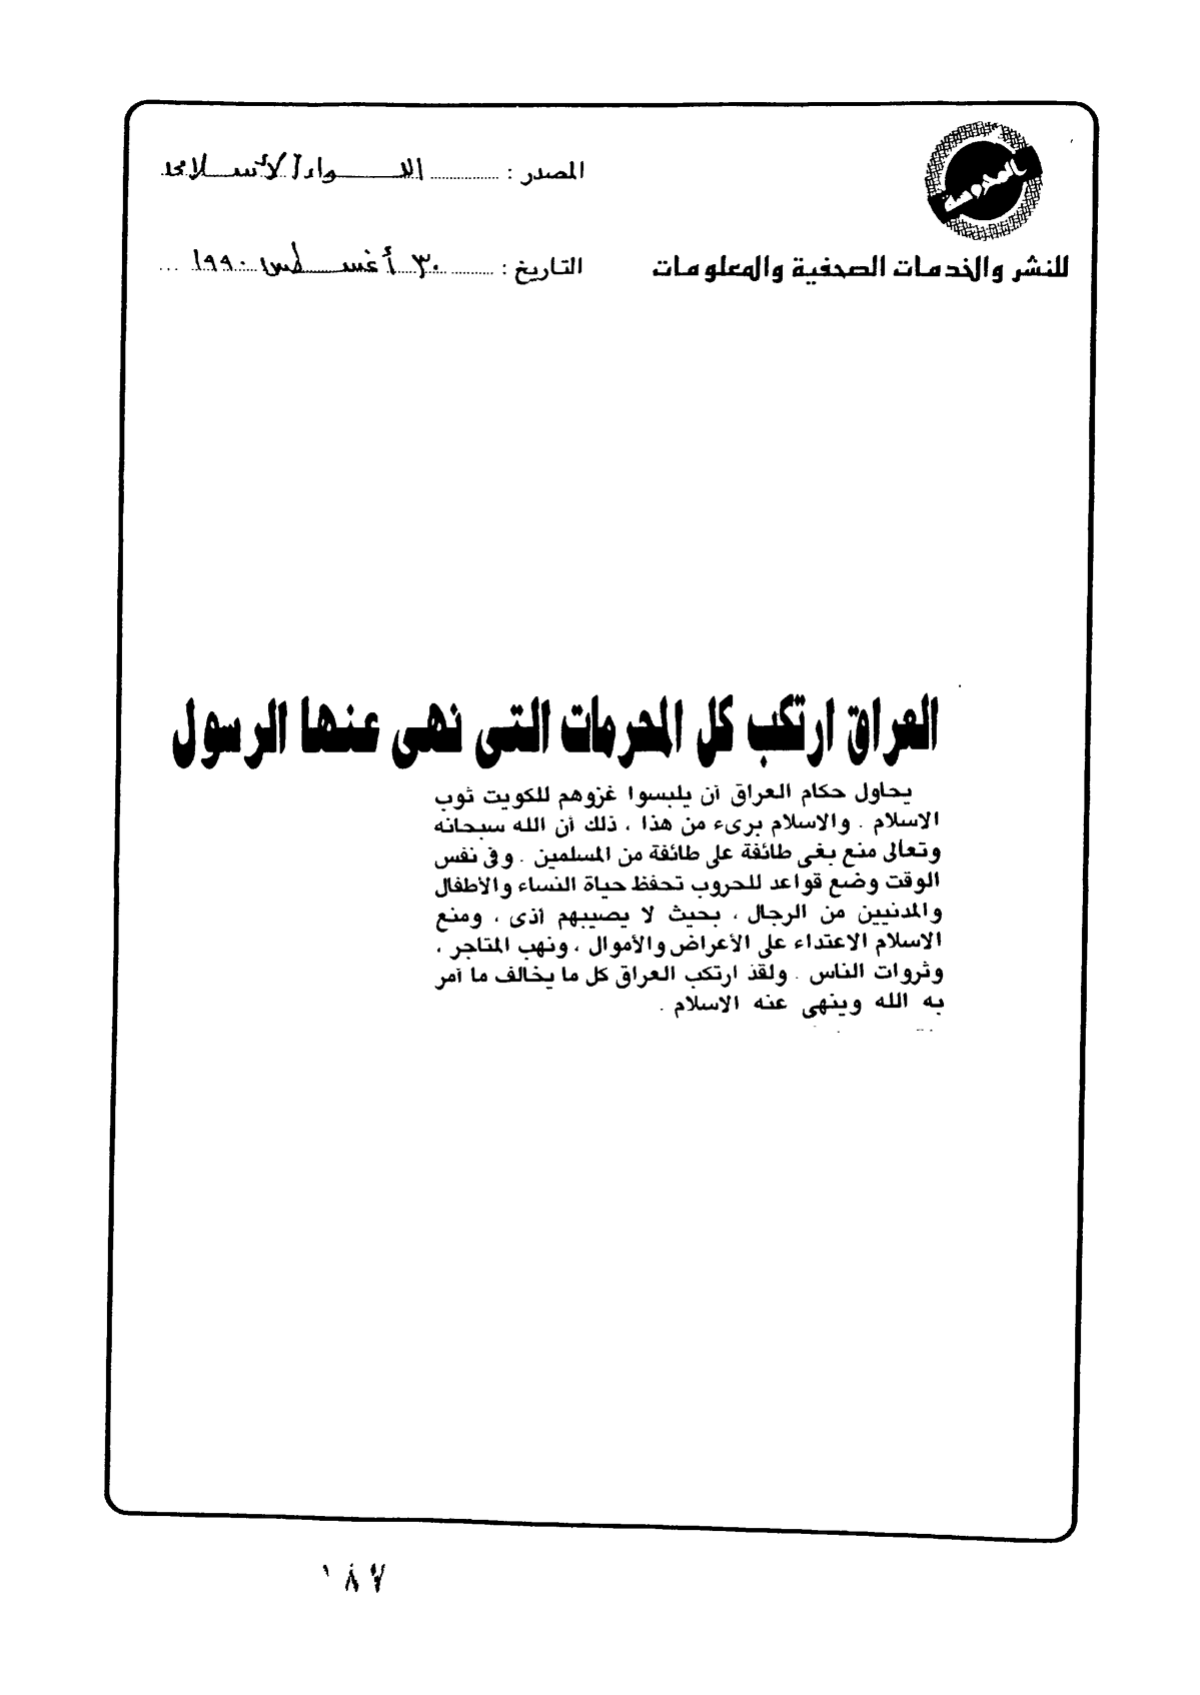 المحروسة
المصدر : اللواء الأسلامى
للنشر والخدمات الصحفية والمعلومات
التاريخ : ٣٠ أغسطس ١٩٩٠
العراق ارتكب كل المحرمات التى نهى عنها الرسول
يحاول حكام العراق أن يلبسوا غزوهم للكويت ثوب
الاسلام . والاسلام برىء من هذا ، ذلك أن الله سبحانه
وتعالى منع بغى طائفة على طائفة من المسلمين . وفى نفس
الوقت وضع قواعد للحروب تحفظ حياة النساء والأطفال
والمدنيين من الرجال ، بحيث لا يصيبهم أذى ، ومنع
الاسلام الاعتداء على الأعراض والأموال ، ونهب المتاجر ،
وثروات الناس . ولقد ارتكب العراق كل ما يخالف ما أمر
به الله وينهى عنه الاسلام .
١٨٧